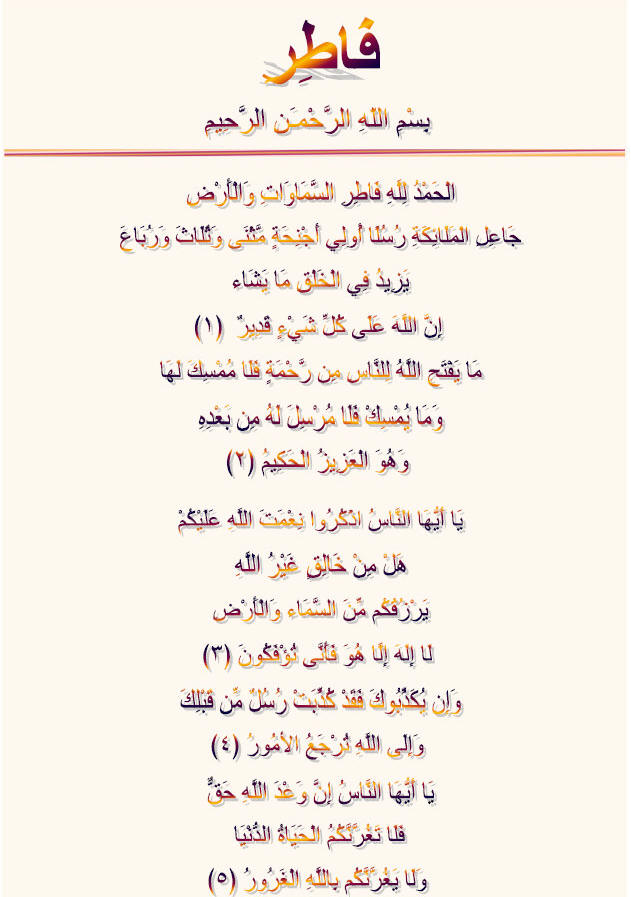 فَاطِرِ
بِسْمِ اللّهِ الرَّحْمَـنِ الرَّحِيمِ
الْحَمْدُ لِلَّهِ فَاطِرِ السَّمَاوَاتِ وَالْأَرْضِ
جَاعِلِ الْمَلَائِكَةِ رُسُلًا أُولِي أَجْنِحَةٍ مَّثْنَى وَثُلَاثَ وَرُبَاعَ
يَزِيدُ فِي الْخَلْقِ مَا يَشَاء
إِنَّ اللَّهَ عَلَى كُلِّ شَيْءٍ قَدِيرٌ (١)
مَا يَفْتَحِ اللَّهُ لِلنَّاسِ مِن رَّحْمَةٍ فَلَا مُمْسِكَ لَهَا
وَمَا يُمْسِكْ فَلَا مُرْسِلَ لَهُ مِن بَعْدِهِ
وَهُوَ الْعَزِيزُ الْحَكِيمُ (٢)
يَا أَيُّهَا النَّاسُ اذْكُرُوا نِعْمَتَ اللَّهِ عَلَيْكُمْ
هَلْ مِنْ خَالِقٍ غَيْرُ اللَّهِ
يَرْزُقُكُم مِّنَ السَّمَاء وَالْأَرْضِ
لَا إِلَهَ إِلَّا هُوَ فَأَنَّى تُؤْفَكُونَ (٣)
وَإِن يُكَذِّبُوكَ فَقَدْ كُذِّبَتْ رُسُلٌ مِّن قَبْلِكَ
وَإِلَى اللَّهِ تُرْجَعُ الأمُورُ (٤)
يَا أَيُّهَا النَّاسُ إِنَّ وَعْدَ اللَّهِ حَقٌّ
فَلَا تَغُرَّنَّكُمُ الْحَيَاةُ الدُّنْيَا
وَلَا يَغُرَّنَّكُم بِاللَّهِ الْغَرُورُ (٥)